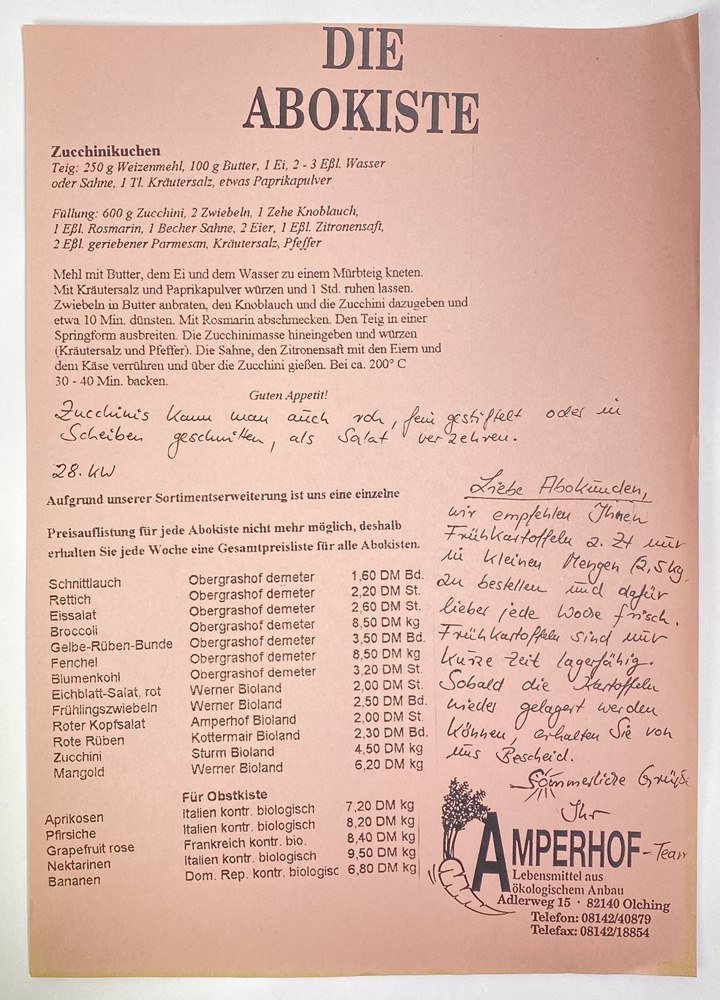 DIE
ABOKISTE
Zucchinikuchen
Teig: 250 g Weizenmehl, 100 g Butter, 1 Ei, 2 - 3 Eßl. Wasser
oder Sahne, 1 Tl. Kräutersalz, etwas Paprikapulver
Füllung: 600 g Zucchini, 2 Zwiebeln, 1 Zehe Knoblauch,
1 Eßl. Rosmarin, 1 Becher Sahne, 2 Eier, 1 Eßl. Zitronensaft,
2 Eßl. geriebener Parmesan, Kräutersalz, Pfeffer
Mehl mit Butter, dem Ei und dem Wasser zu einem Mürbteig kneten.
Mit Kräutersalz und Paprikapulver würzen und 1 Std. ruhen lassen.
Zwiebeln in Butter anbraten, den Knoblauch und die Zucchini dazugeben und
etwa 10 Min. dünsten. Mit Rosmarin abschmecken. Den Teig in einer
Springform ausbreiten. Die Zucchinimasse hineingeben und würzen
(Kräutersalz und Pfeffer). Die Sahne, den Zitronensaft mit den Eiern und
dem Käse verrühren und über die Zucchini gießen. Bei ca. 200° C
30 - 40 Min. backen.
Guten Appetit!
Zucchinis kann man auch roh, fein gestiftelt oder in
Scheiben geschnitten, als Salat verzehren.
28. KW
Aufgrund unserer Sortimentserweiterung ist uns eine einzelne
Preisauflistung für jede Abokiste nicht mehr möglich, deshalb
erhalten Sie jede Woche eine Gesamtpreisliste für alle Abokisten.
Schnittlauch Obergrashof demeter 1,60 DM Bd.
Rettich Obergrashof demeter 2,20 DM St.
Eissalat Obergrashof demeter 2,60 DM St.
Broccoli Obergrashof demeter 8,50 DM kg
Gelbe-Rüben-Bunde Obergrashof demeter 3,50 DM Bd.
Fenchel Obergrashof demeter 8,50 DM kg
Blumenkohl Obergrashof demeter 3,20 DM St.
Eichblatt-Salat, rot Werner Bioland 2,00 DM St.
Frühlingszwiebeln Werner Bioland 2,50 DM Bd.
Roter Kopfsalat Amperhof Bioland 2,00 DM St.
Rote Rüben Kottermair Bioland 2,30 DM Bd.
Zucchini Sturm Bioland 4,50 DM kg
Mangold Werner Bioland 6,20 DM kg
Für Obstkiste
Aprikosen Italien kontr. biologisch 7,20 DM kg
Pfirsiche Italien kontr. biologisch 8,20 DM kg
Grapefruit rose Frankreich kontr. bio. 8,40 DM kg
Nektarinen Italien kontr. biologisch 9,50 DM kg
Bananen Dom. Rep. kontr. biologisc 6,80 DM kg
Liebe Abokunden,
wir empfehlen Ihnen
Frühkartoffeln z. Zt nur
in kleinen Mengen (2,5kg
zu bestellen und dafür
lieber jede Woche frisch.
Frühkartoffeln sind nur
kurze Zeit lagerfähig.
Sobald die Kartoffeln
wieder gelagert werden
können, erhalten Sie von
uns Bescheid.
Sommerliche Grüße
Ihr
AMPERHOF-Team
Lebensmittel aus
ökologischem Anbau
Adlerweg 15 · 82140 Olching
Telefon: 08142/40879
Telefax: 08142/18854